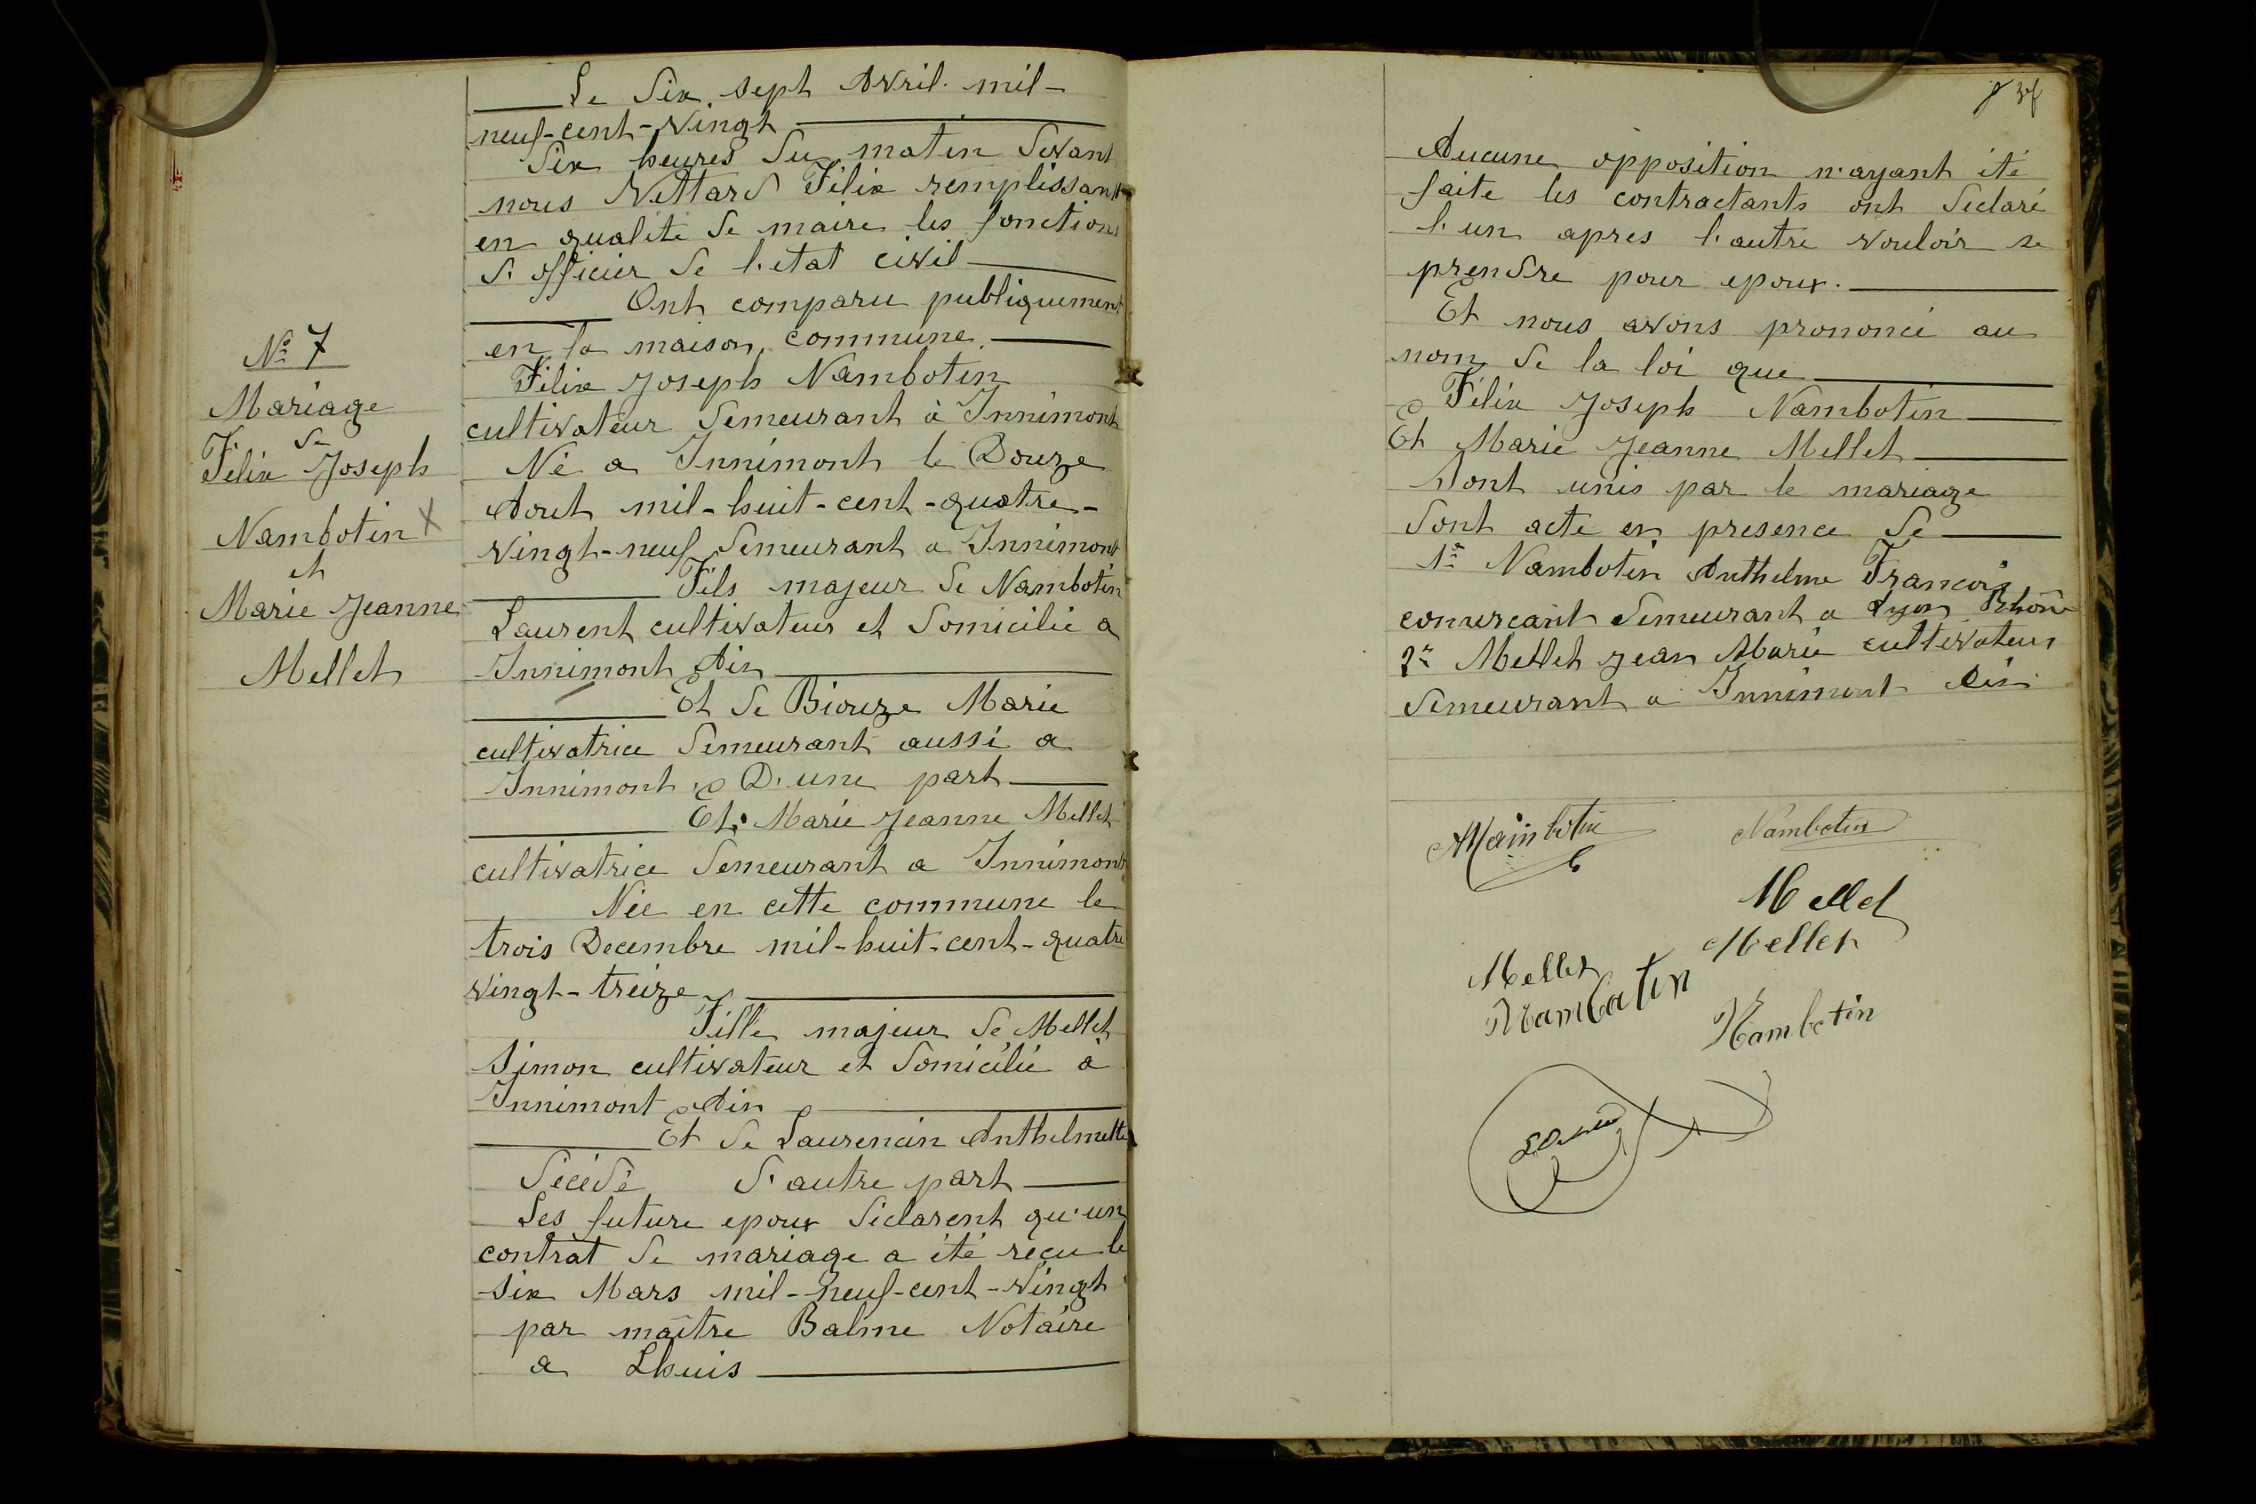 Le dix, sept Avril. mil-
neuf-cent-vingt
Dix heures du matin devant
nous Vettard Félix remplissant
en qualité de maire les fonctions
d'officier de l'etat civil
Ont comparu publiquement
en la maison, commune.
Félix Joseph Nambotin
cultivateur demeurant à Innimont
Né a Innimont le Douze
Aout mil-huit-cent-quatre-
vingt-neuf demeurant a Innimont
Fils majeur de Nambotin
Laurent cultivateur et domicilié a
Innimont Ain
Et de Biouze Marie
cultivatrice demeurant aussi a
Innimont D'une part
Et. Marie Jeanne Mellet
cultivatrice demeurant a Innimont
Née en cette commune le
trois Decembre mil-huit-cent-quatre
vingt-treize
Fille majeur de Mellet
Simon cultivateur et domicilié à
Innimont Ain
Et de Laurencin Anthelmette
décédé d'autre part
Les future epoux déclarent qu'un
contrat de mariage a été reçu le
six Mars mil-neuf-cent-vingt
par maître Balme Notaire
a Lhuis
No 7
Mariage
de
Félix Joseph
Nambotin X
et
Marie Jeanne
Mellet
37
Aucune opposition n'ayant été
faite les contractants ont déclaré
l'un apres l'autre vouloir se
prendre pour epoux.
Et nous avons prononcé au
nom de la loi que
Félix Joseph Nambotin
Et Marie Jeanne Mellet
Sont unis par le mariage
dont acte en presence de
1er Nambotin Anthelme Francois
comercant demeurant a Lyon Rhône
2e Mellet Jean Marie cultivateur
demeurant a Innimont Ain
Nambotin Nambotin
Mellet
Mellet Mellet
Nambotin Nambotin